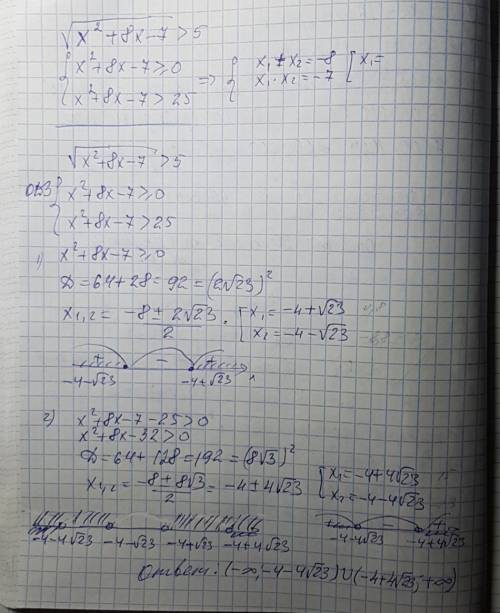 √(x²+8x-7) > 5
{ x²+8x-7 ≥ 0
{ x²+8x-7 > 25 => { x₁+x₂ = -8 [ x₁=
x₁·x₂ = -7
√(x²+8x-7) > 5
ОДЗ { x²+8x-7 ≥ 0
{ x²+8x-7 > 25
1) x²+8x-7 ≥ 0
D = 64+28 = 92 = (2√23)²
x₁,₂ = (-8 ± 2√23)/2 . [ x₁ = -4+√23
x₂ = -4-√23
+ - +
-4-√23 -4+√23 x
2) x²+8x-7-25 > 0
x²+8x-32 > 0
D = 64+128 = 192 = (8√3)²
x₁,₂ = (-8 ± 8√3)/2 = -4 ± 4√23 [ x₁ = -4+4√23
x₂ = -4-4√23
+ - +
-4-4√23 -4-√23 -4+√23 -4+4√23 -4-4√23 -4+4√23
Ответ: (-∞; -4-4√23)∪(-4+4√23; +∞)